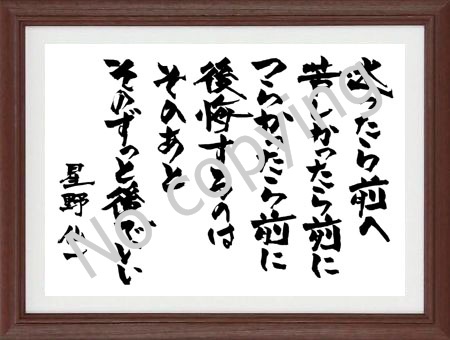 迷ったら前へ
苦しかったら前に
つらかったら前に
後悔するのは
そのあと
そのずっと後でいい
星野仙一
No copying